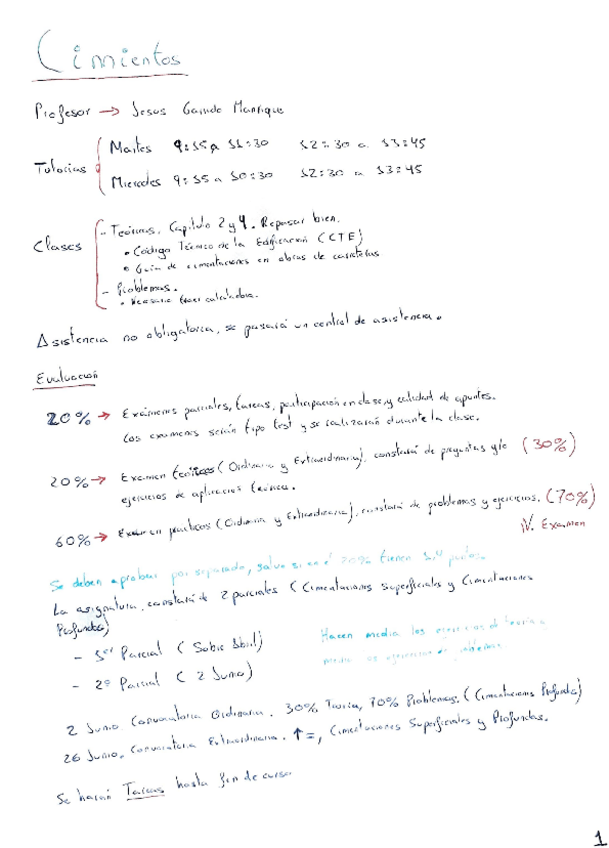 Cimientos
Profesor → Jesus Garrido Manrique
Tutorias
Martes 9:15 a 11:30 12:30 a 13:45
Miercoles 9:15 a 10:30 12:30 a 13:45
Clases
- Teóricas. Capítulo 2 y 4. Repasar bien.
• Código Técnico de la Edificación (CTE)
• Guia de cimentaciones en obras de carreteras
- Problemas.
• Necesario traer calculadora.
Asistencia no obligatoria, se pasará un control de asistencia.
Evaluación
20% → Exámenes parciales, tareas, participación en clase, y calidad de apuntes.
Los examenes serán tipo test y se realizarán durante la clase.
20% → Examen teóricos (Ordinaria y Extraordinaria), constará de preguntas y/o (30%)
ejercicios de aplicación teórica.
60% → Examen practicos (Ordinaria y Extraordinaria), constará de problemas y ejercicios. (70%)
Examen
Se deben aprobar por separado, salvo si en el 20% tienen
La asignatura, constará de 2 parciales (Cimentaciones Superficiales y Cimentaciones
Profundas)
- 1er Parcial (Sobre Abril)
- 2º Parcial (2 Junio)
Hacen media los ejercicios de teoria y
media de ejercicios de problemas
2 Junio Convocatoria Ordinaria. 30% Teoría, 70% Problemas. (Cimentaciones Profundas)
26 Junio, Convocatoria Extraordinaria. ↑ =, Cimentaciones Superficiales y Profundas.
Se harán Tareas hasta fin de curso
1